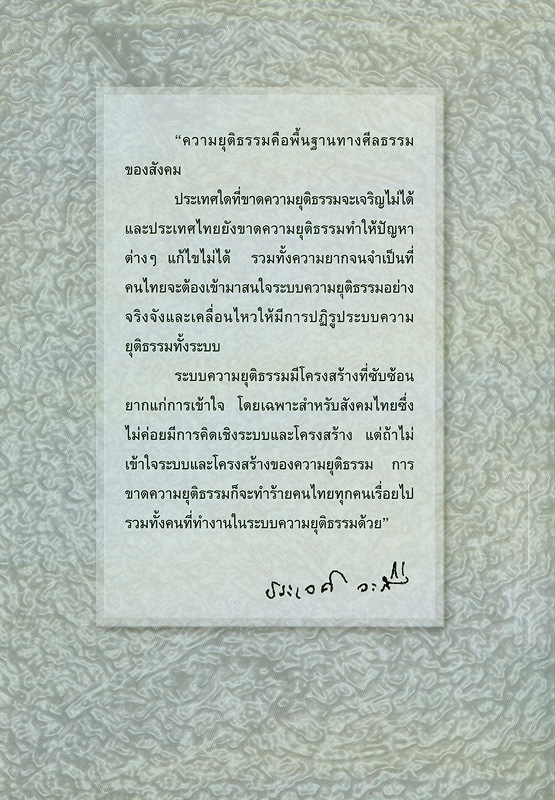 “ความยุติธรรมคือพื้นฐานทางศีลธรรม
ของสังคม
ประเทศใดที่ขาดความยุติธรรมจะเจริญไม่ได้
และประเทศไทยยังขาดความยุติธรรมทำให้ปัญหา
ต่างๆ แก้ไขไม่ได้ รวมทั้งความยากจนจำเป็นที่
คนไทยจะต้องเข้ามาสนใจระบบความยุติธรรมอย่าง
จริงจังและเคลื่อนไหวให้มีการปฏิรูประบบความ
ยุติธรรมทั้งระบบ
ระบบความยุติธรรมมีโครงสร้างที่ซับซ้อน
ยากแก่การเข้าใจ โดยเฉพาะสำหรับสังคมไทยซึ่ง
ไม่ค่อยมีการคิดเชิงระบบและโครงสร้าง แต่ถ้าไม่
เข้าใจระบบและโครงสร้างของความยุติธรรม การ
ขาดความยุติธรรมก็จะทำร้ายคนไทยทุกคนเรื่อยไป
รวมทั้งคนที่ทำงานในระบบความยุติธรรมด้วย”
ประเวศ วะสี